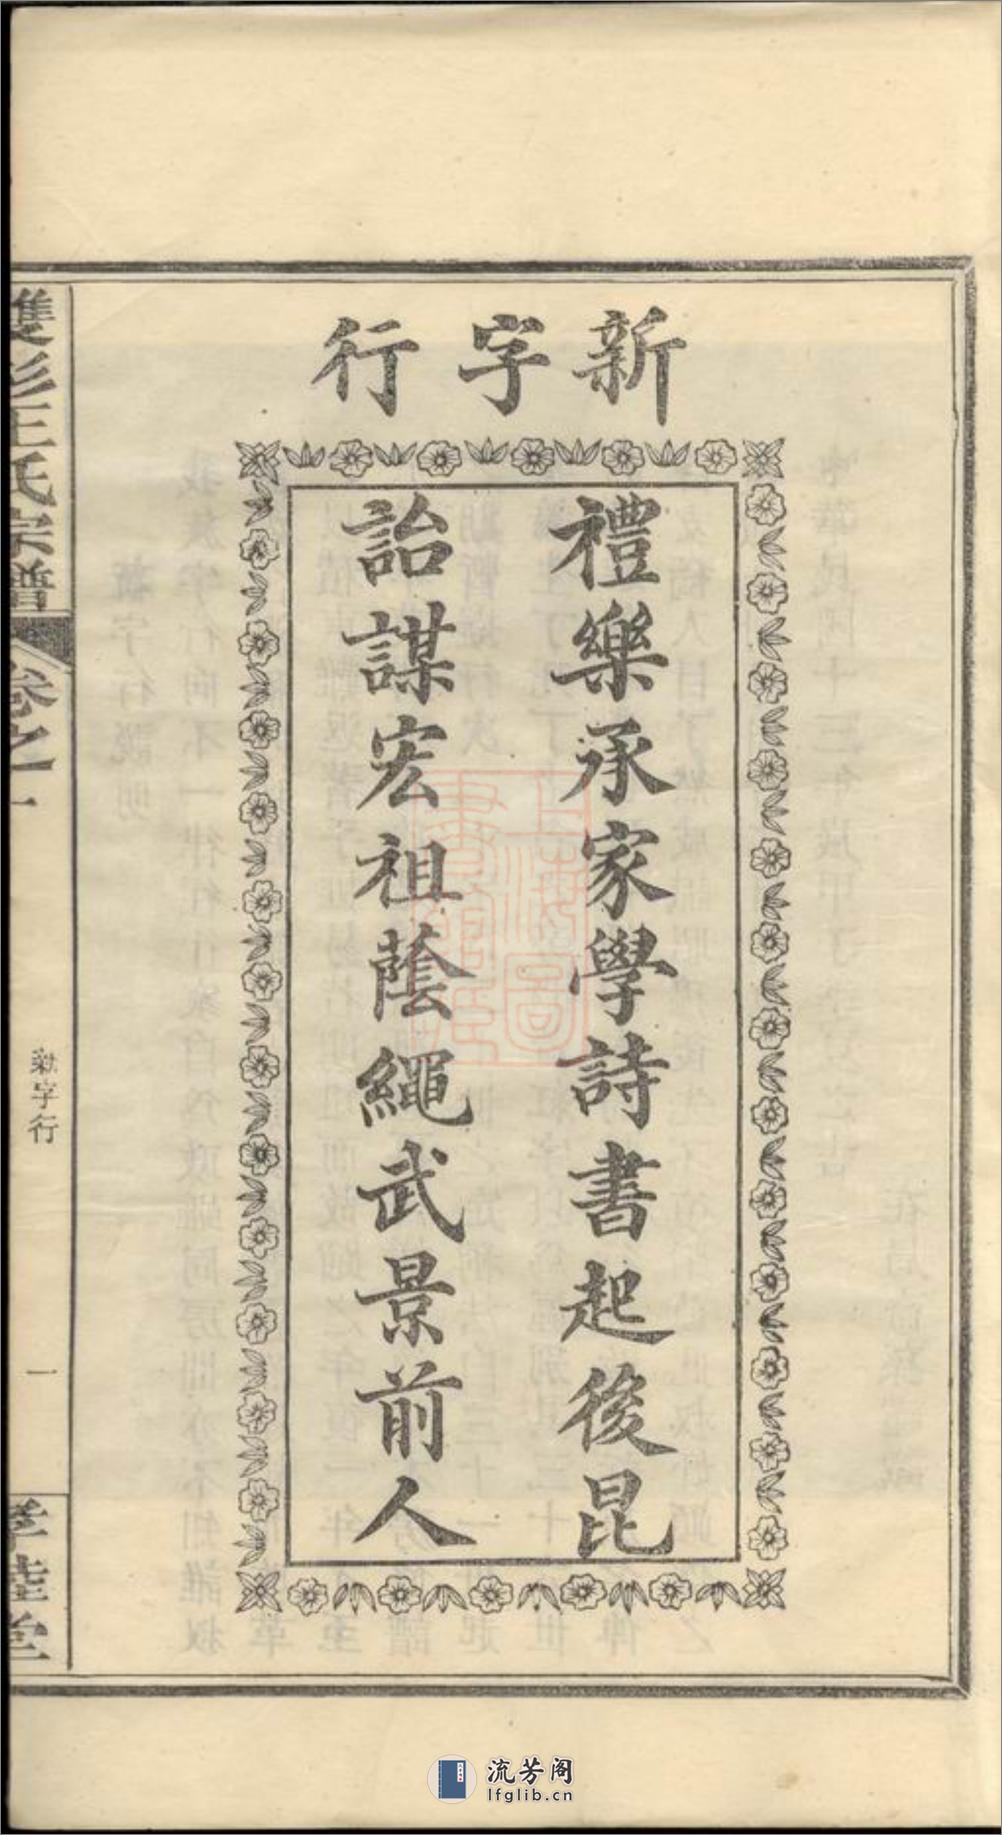 新字行
禮樂承家學詩書起後昆
詒謀宏祖蔭繩武景前人
雙杉王氏宗譜
卷之一
新字行
一
孝睦堂
上海圖書館藏
流芳阁
lfglib.cn